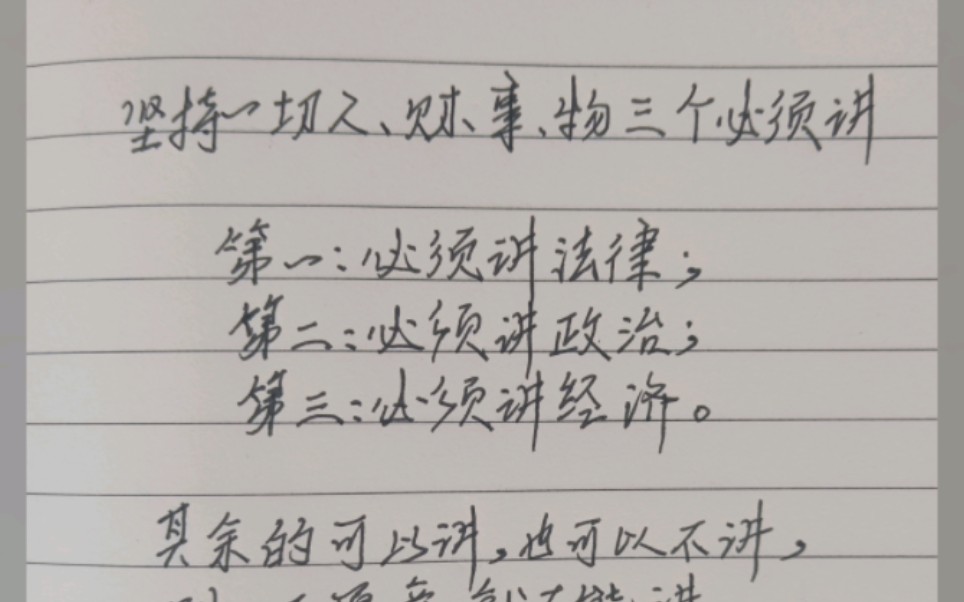 坚持一切人、财、事、物三个必须讲
第一:必须讲法律;
第二:必须讲政治;
第三:必须讲经济。
其余的可以讲,也可以不讲,